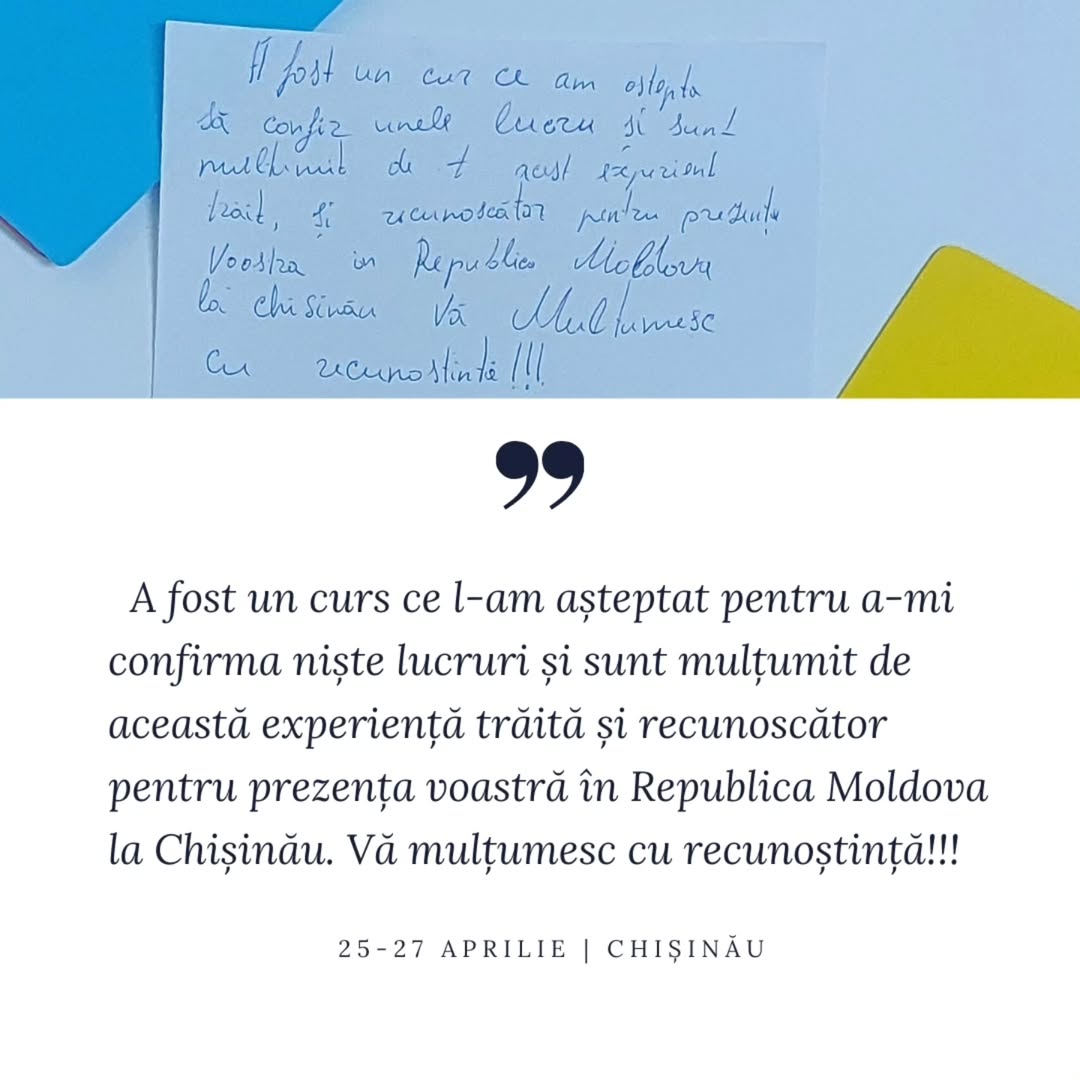 A fost un cur ce am ostepta
să confiz unele lucru și sunt
multimit de t acest experient
trăit, și recunoscător pentru prezența
Voostra in Republica Moldova
la chisinău Vă Multumesc
Cu recunostintă!!!
”
A fost un curs ce l-am așteptat pentru a-mi
confirma niște lucruri și sunt mulțumit de
această experiență trăită și recunoscător
pentru prezența voastră în Republica Moldova
la Chișinău. Vă mulțumesc cu recunoștință!!!
25-27 APRILIE | CHIȘINĂU